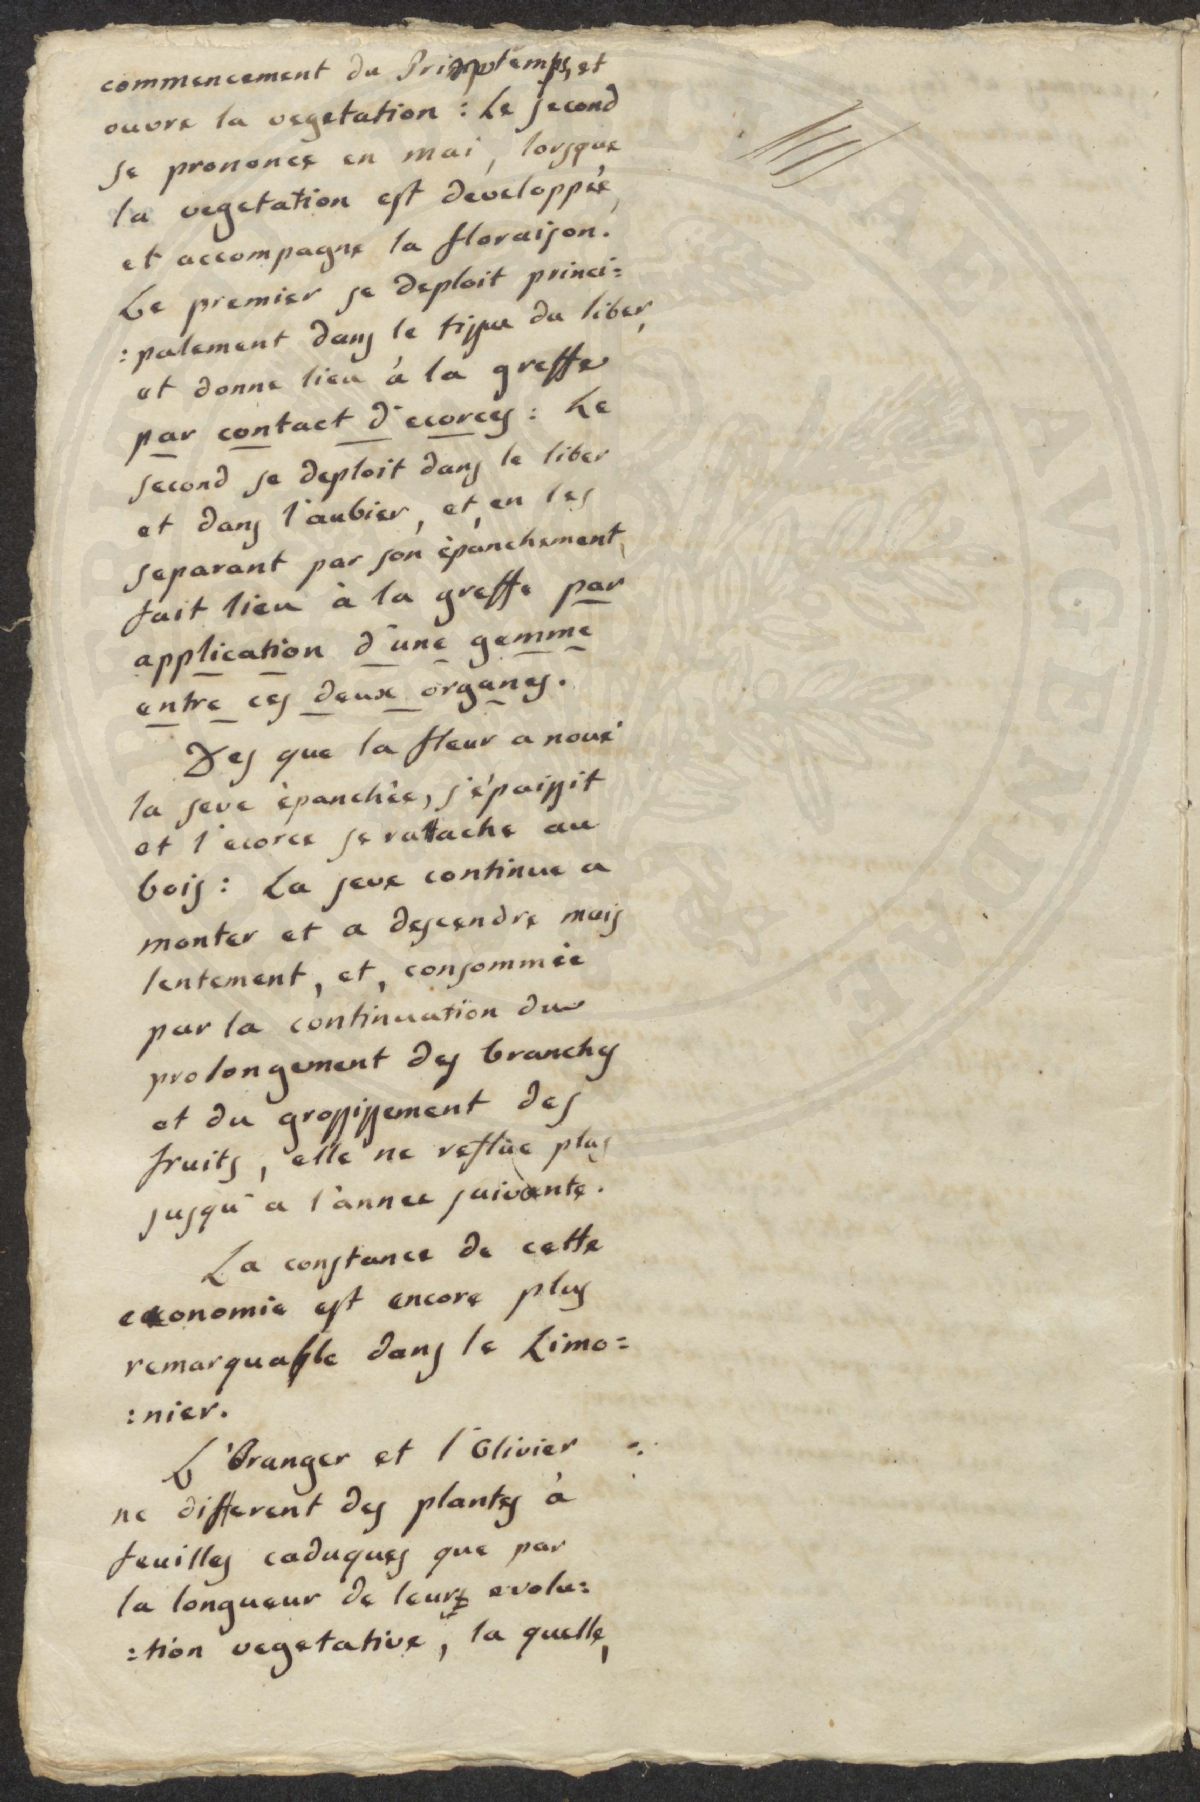 commencement du Printemps, et
ouvre la vegetation : Le second
se prononce en mai, lorsque
la vegetation est developpée,
et accompagne la floraison.
Le premier se deploit princi=
:palement dans le tissu du liber,
et donne lieu à la greffe
par contact d'ecorces : Le
second se deploit dans le liber
et dans l'aubier, et, en les
separant par son èpanchement,
fait lieu à la greffe par
application d'une gemme
entre ces deux organes.
Des que la fleur a noué
la seve èpanchèe, s'épaissit
et l'ecorce se rattache au
bois : La seve continue a
monter et a descendre mais
lentement, et, consommée
par la continuation du
prolongement des branches
et du grossissement des
fruits, elle ne reflùe plus
jusqu'a l'annee suivante.
La constance de cette
economie est encore plus
remarquable dans le Limo=
:nier.
L'Oranger et l'Olivier
ne different des plantes à
feuilles caduques que par
la longueur de leur evolu=
:tion vegetative, la quelle,